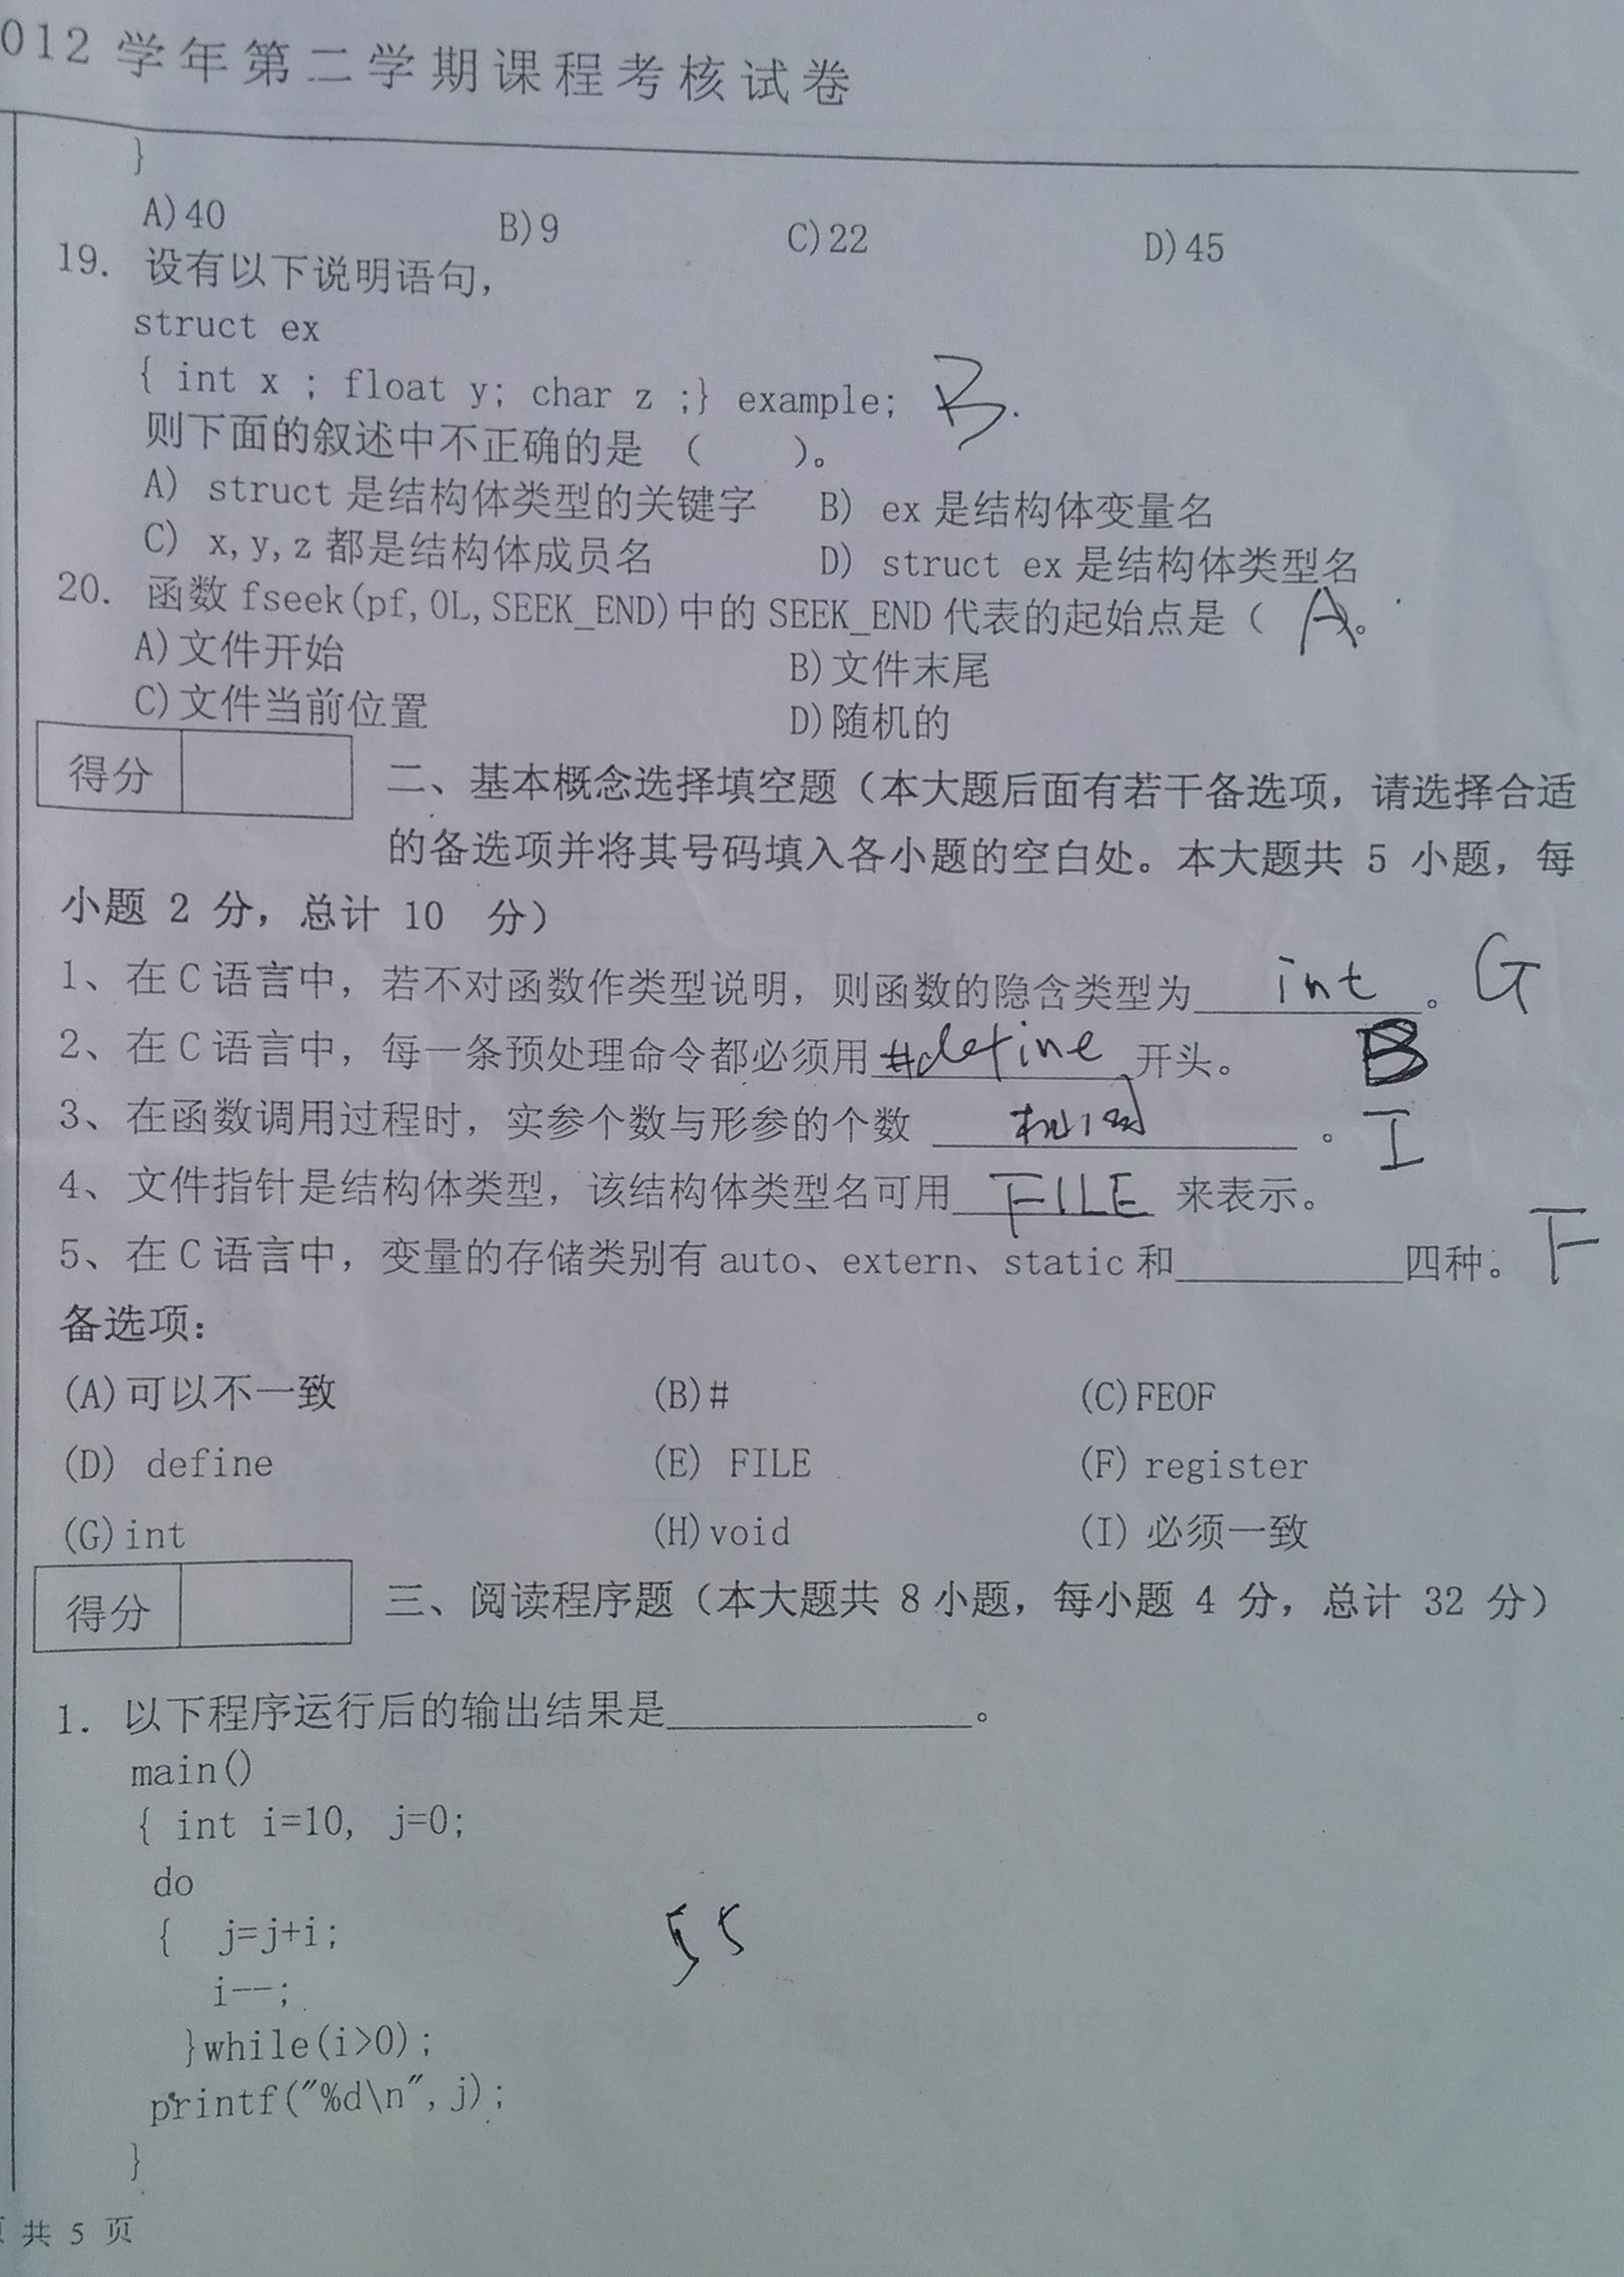 012学年第二学期课程考核试卷
}
A)40 B)9 C)22 D)45
19. 设有以下说明语句,
struct ex
{ int x ; float y; char z ;} example; B.
则下面的叙述中不正确的是 （ ）。
A) struct 是结构体类型的关键字 B) ex 是结构体变量名
C) x,y,z 都是结构体成员名 D) struct ex 是结构体类型名
20. 函数 fseek(pf,0L,SEEK_END)中的 SEEK_END 代表的起始点是（ A ）。
A)文件开始 B)文件末尾
C)文件当前位置 D)随机的
得分
二、基本概念选择填空题（本大题后面有若干备选项，请选择合适
的备选项并将其号码填入各小题的空白处。本大题共 5 小题，每
小题 2 分，总计 10 分）
1、在 C 语言中，若不对函数作类型说明，则函数的隐含类型为 int 。 G
2、在 C 语言中，每一条预处理命令都必须用 #define 开头。 B
3、在函数调用过程时，实参个数与形参的个数 相同 。 I
4、文件指针是结构体类型，该结构体类型名可用 FILE 来表示。
5、在 C 语言中，变量的存储类别有 auto、extern、static 和________四种。 F
备选项：
(A)可以不一致 (B)# (C)FEOF
(D) define (E) FILE (F) register
(G)int (H)void (I) 必须一致
得分
三、阅读程序题（本大题共 8 小题，每小题 4 分，总计 32 分）
1. 以下程序运行后的输出结果是____________。
main()
{ int i=10, j=0;
do
{ j=j+i; 55
i--;
}while(i>0);
printf("%d\n",j);
}
共 5 页